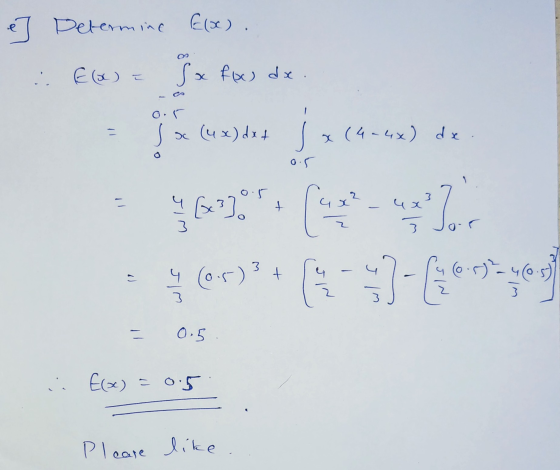 e] Determine E(x).
∴ E(x) = ∫_{-∞}^{∞} x f(x) dx.
= ∫_{0}^{0.5} x (4x) dx + ∫_{0.5}^{1} x (4-4x) dx.
= 4/3 [x³]_{0}^{0.5} + [4x²/2 - 4x³/3]_{0.5}^{1}
= 4/3 (0.5)³ + [4/2 - 4/3] - [4/2 (0.5)² - 4/3 (0.5)³]
= 0.5
∴ E(x) = 0.5.
Please like.